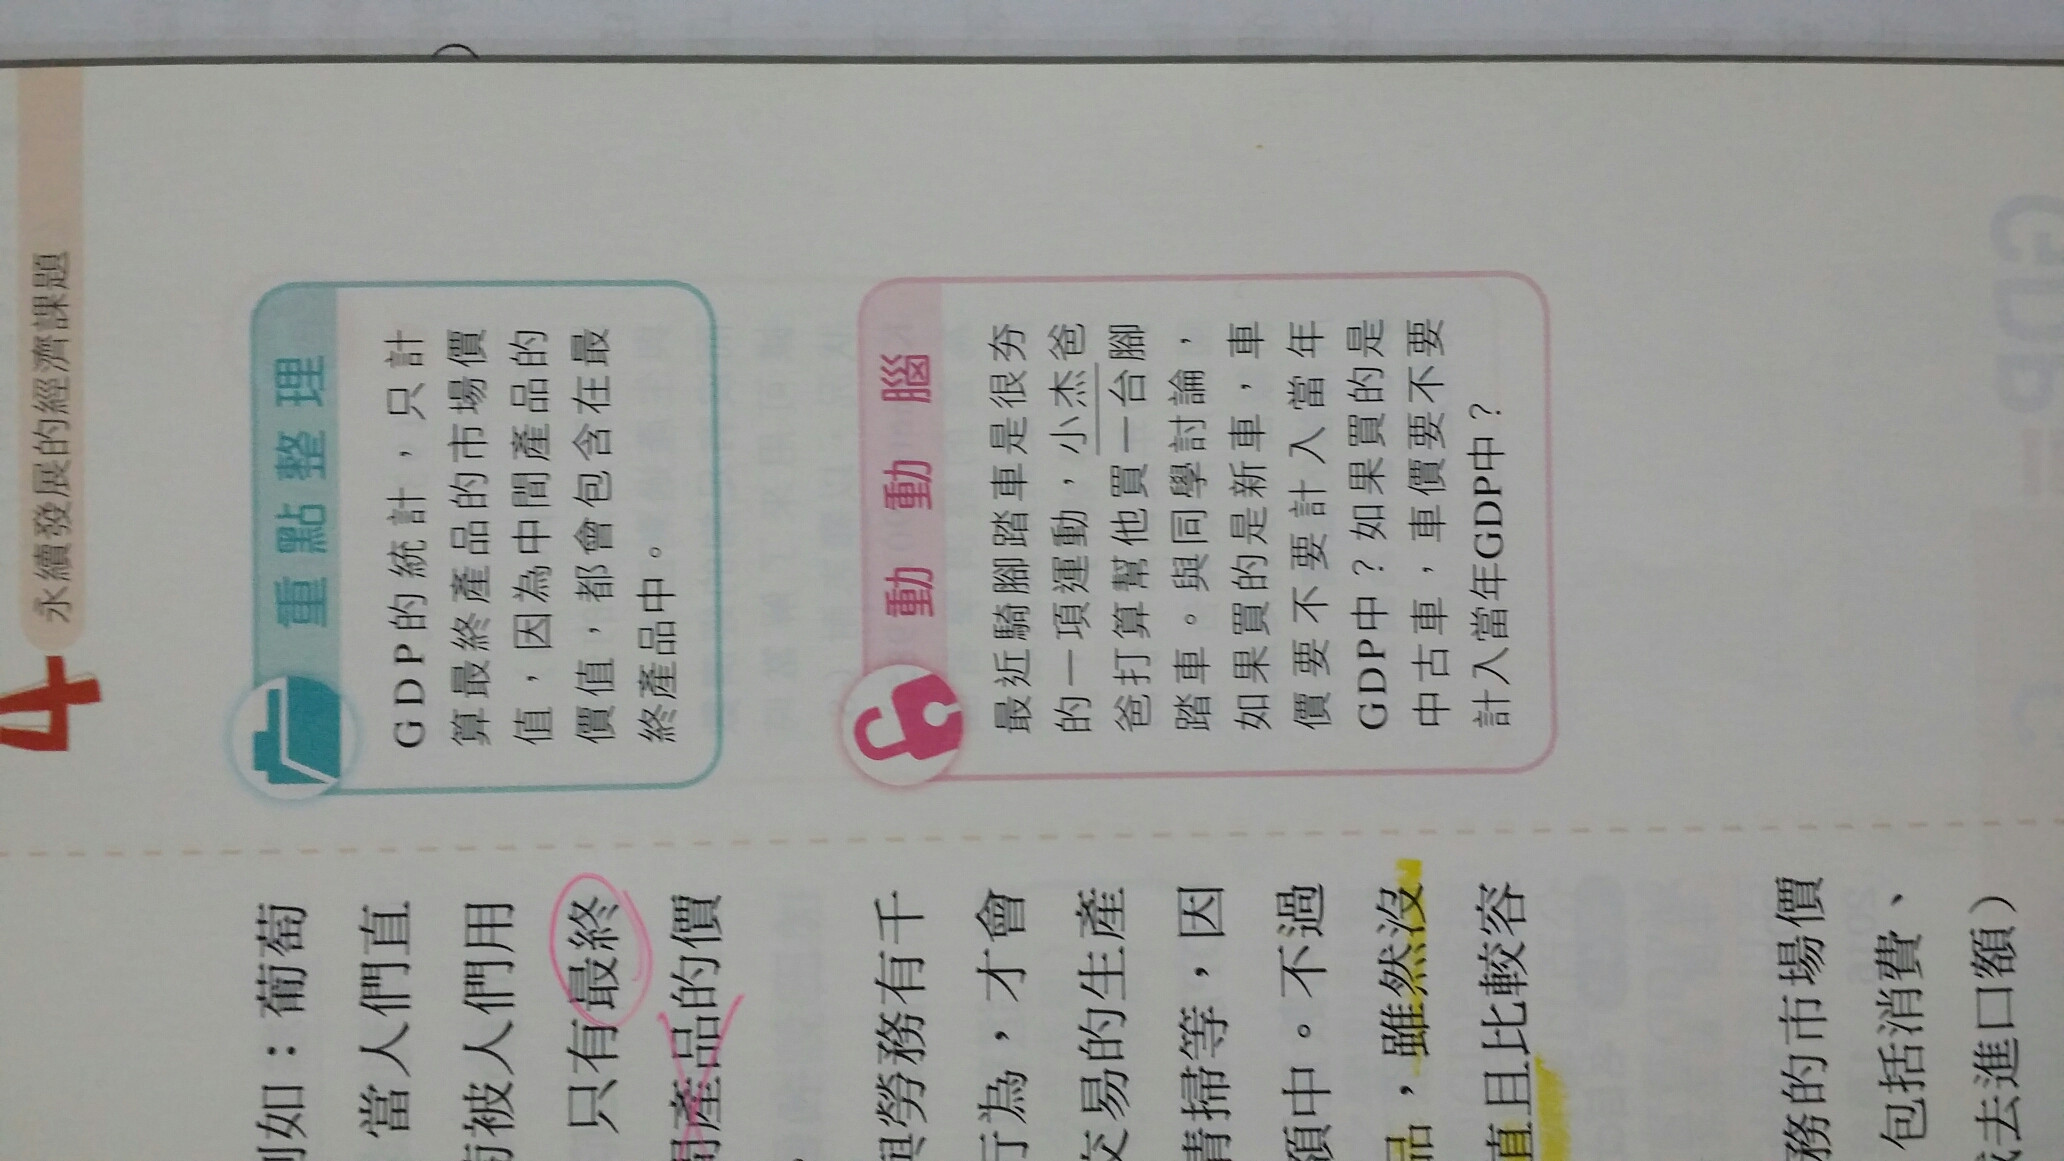 4 永續發展的經濟課題
重點整理
GDP的統計，只計
算最終產品的市場價
值，因為中間產品的
價值，都會包含在最
終產品中。
動動腦
最近騎腳踏車是很夯
的一項運動，小杰爸
爸打算幫他買一台腳
踏車。與同學討論，
如果買的是新車，車
價要不要計入當年
GDP中？如果買的是
中古車，車價要不要
計入當年GDP中？
如：葡萄
當人們直
被人們用
只有最終
產品的價
勞務有千
行為，才會
交易的生產
清掃等，因
額中。不過
品，雖然沒
值且比較容
務的市場價
包括消費、
減去進口額）